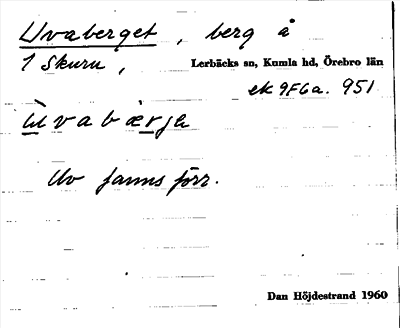 Uvaberget, berg å
1 Skuru,
Lerbäcks sn, Kumla hd, Örebro län
ek 9F6a. 951
ùvabærjə
Uv fanns förr.
Dan Höjdestrand 1960